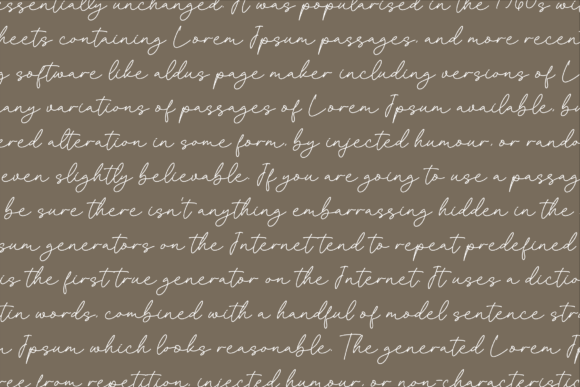 essentially unchanged. It was popularised in the 1960s wi
heets containing Lorem Ipsum passages, and more recen
g software like aldus page maker including versions of L
any variations of passages of Lorem Ipsum available, bu
ered alteration in some form, by injected humour, or rando
even slightly believable. If you are going to use a passag
be sure there isn't anything embarrassing hidden in the
sum generators on the Internet tend to repeat predefined
is the first true generator on the Internet. It uses a dictio
tin words, combined with a handful of model sentence stru
m Ipsum which looks reasonable. The generated Lorem Ip
ree from repetition, injected humour, or non-characteristic